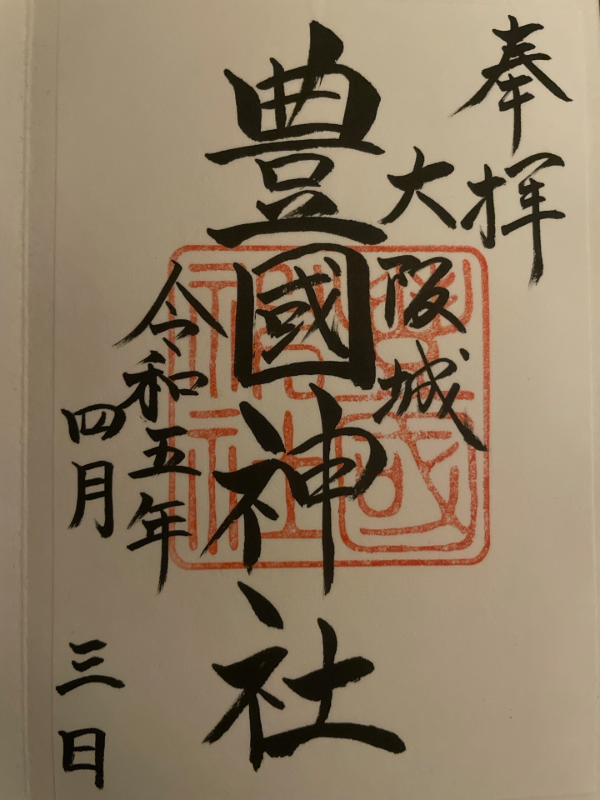 奉拝
大阪城
豊國神社
令和五年
四月三日
豊國
神社